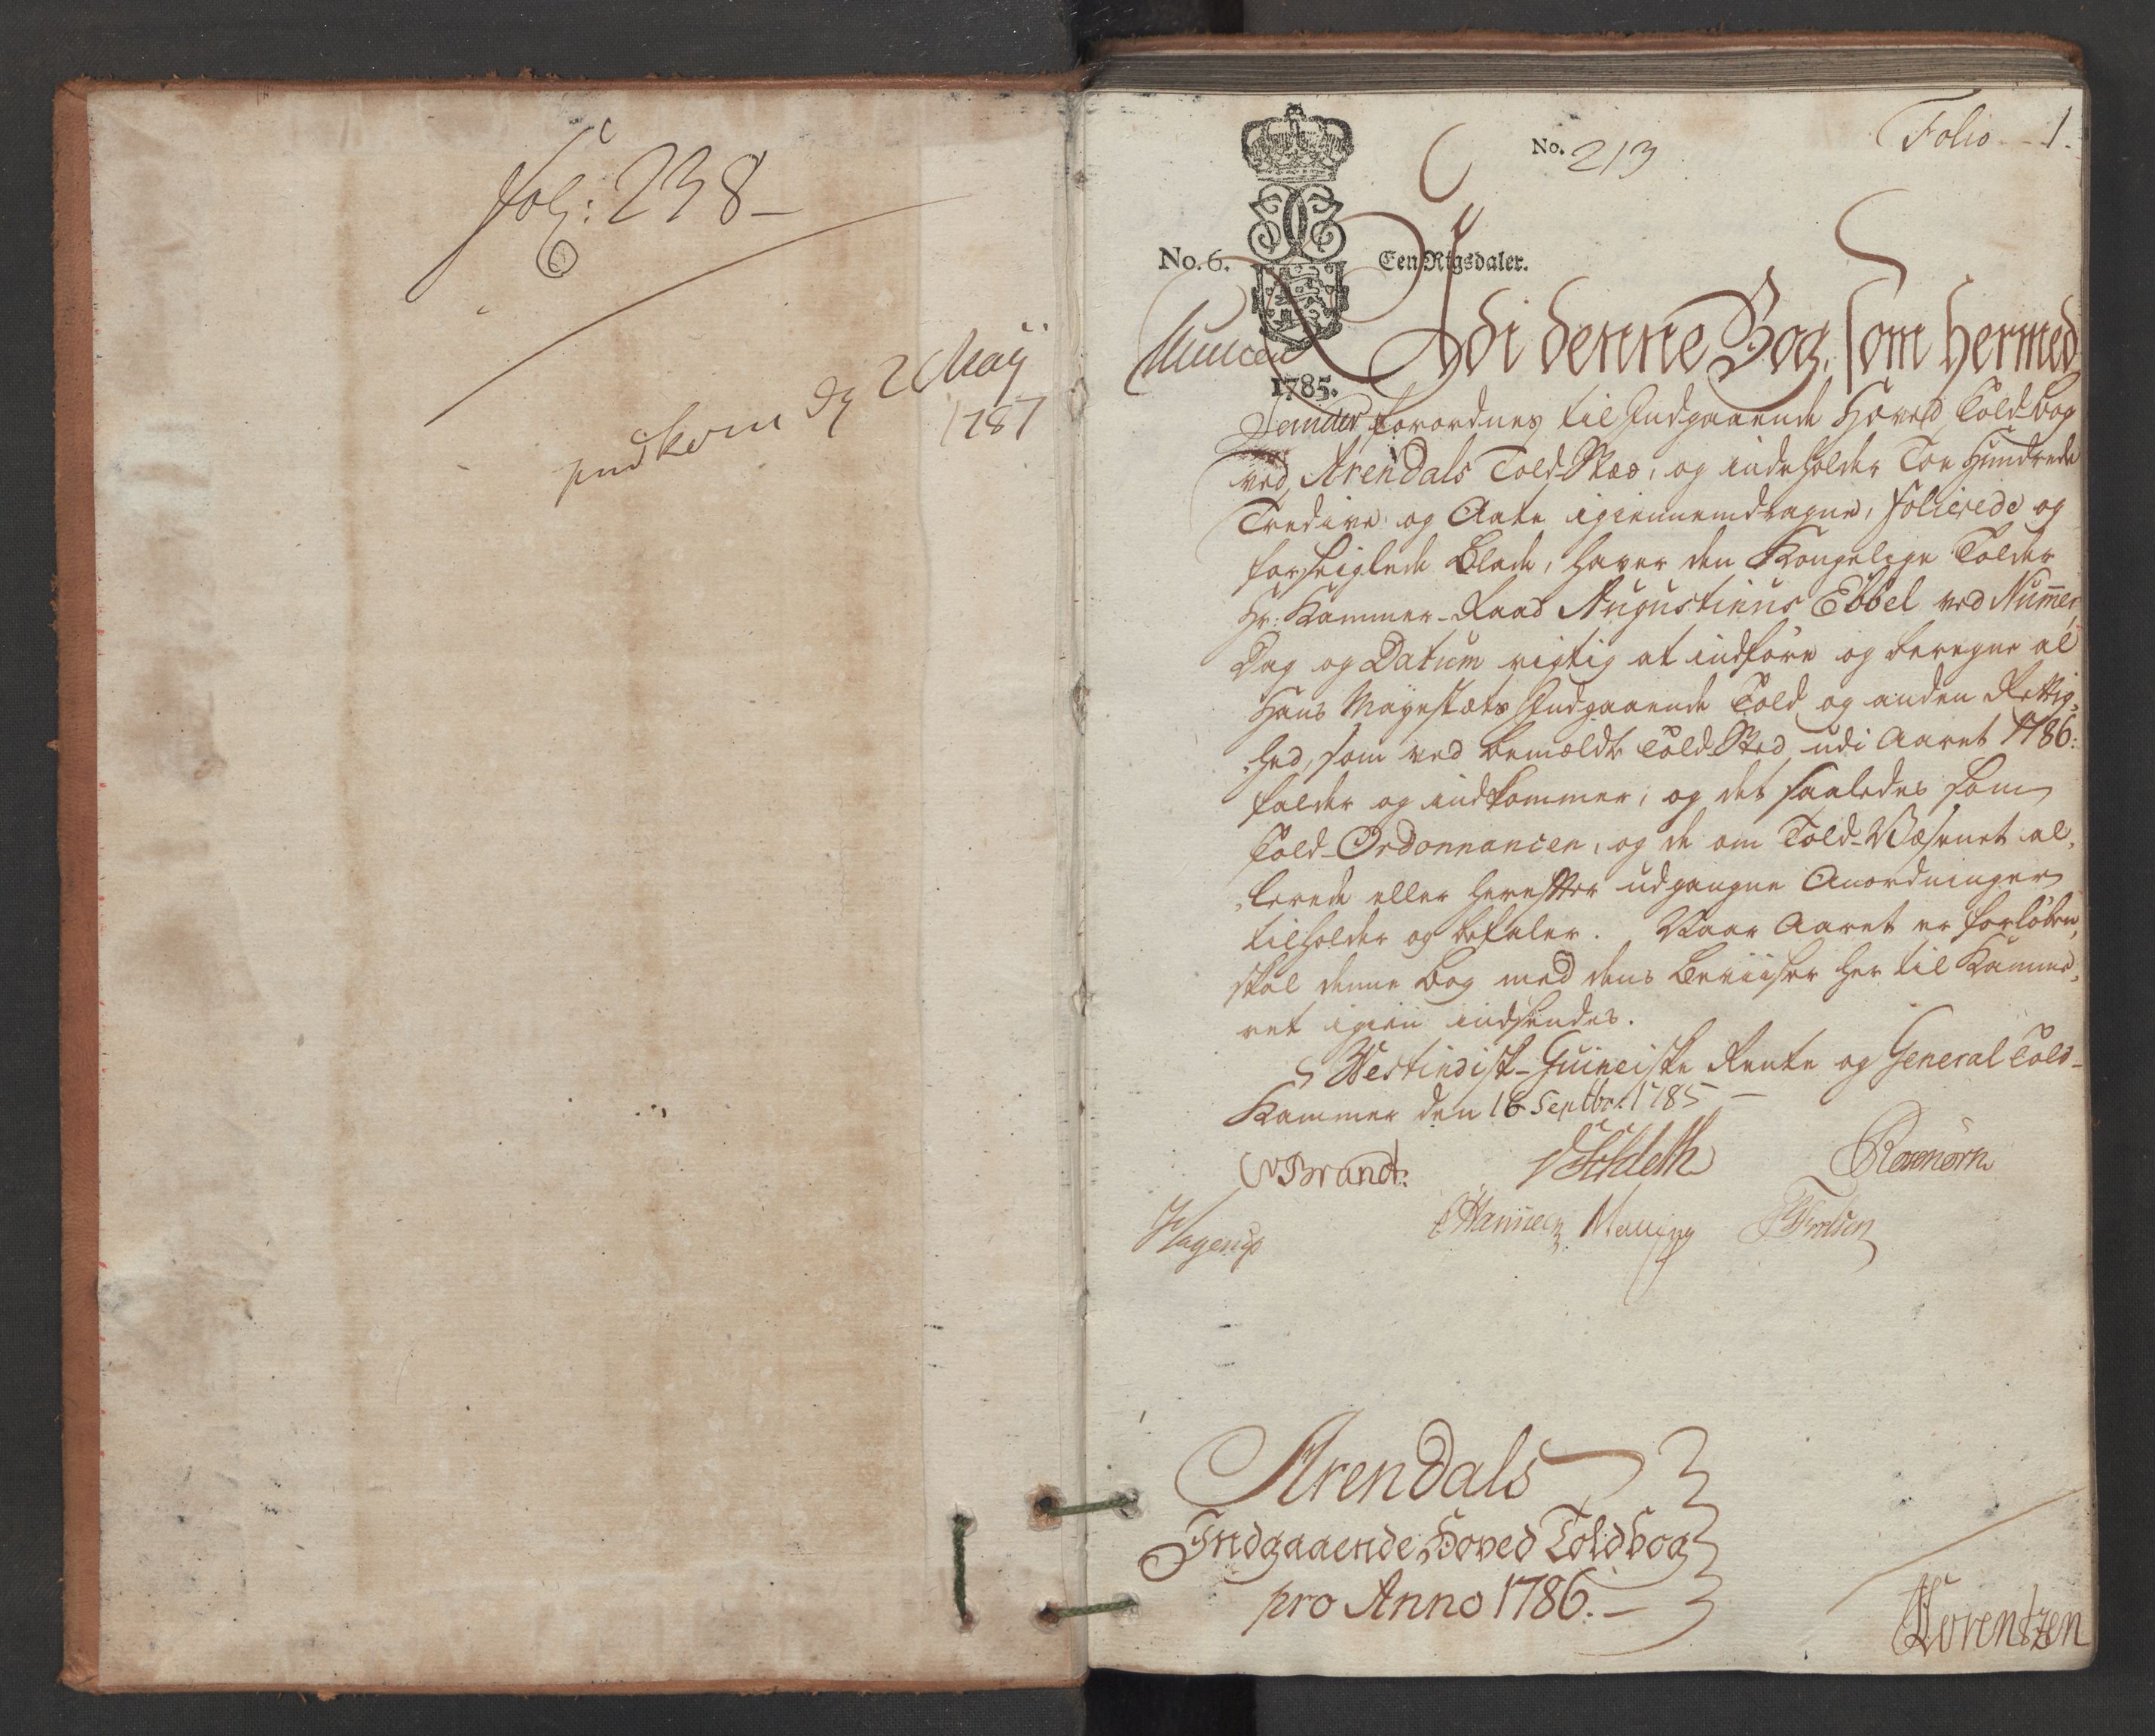 fol: 238 –
indkom dq 2 Maij
1787
No. 213
Folio - - 1.
No. 6.
Een Rigsdaler.
1785.
Udi denne Bog, som hermed
forordnes til Indgaaende Hoved Told-bog
ved Arendals Told-Stæd, og indeholder Toe Hundrede
Tredive og Aate igiennemdragne, folierede og
forseiglede Blade, haver den Kongelige Tolder
Hr: Kammer-Raad Augustinus Ebbel ved Num̅er,
Dag og Datum rigtig at indføre og beregne al
Hans Mayestæts Indgaaende Told og anden Rettig-
-hed, som ved bemældte Told-Sted udi Aaret 1786:
falder og indkommer; og det saaledes som
Told-Ordonnancen, og de om Told-Væsenet al-
-lerede eller herefter udgangne Anordninger
tilholder og befaler. Naar Aaret er forløben,
skal denne Bog med dens Beviiser her til Kamme-
ret igien indsendes.
Westindisk-Guineiske Rente og General Told-
Kammer den 16 Septbr: 1785 –
Brandt:
Rosenørn
Hagerup
Malling
Arendals
Indgaaende Hoved Toldbog
pro Anno 1786. –
Lorentzen